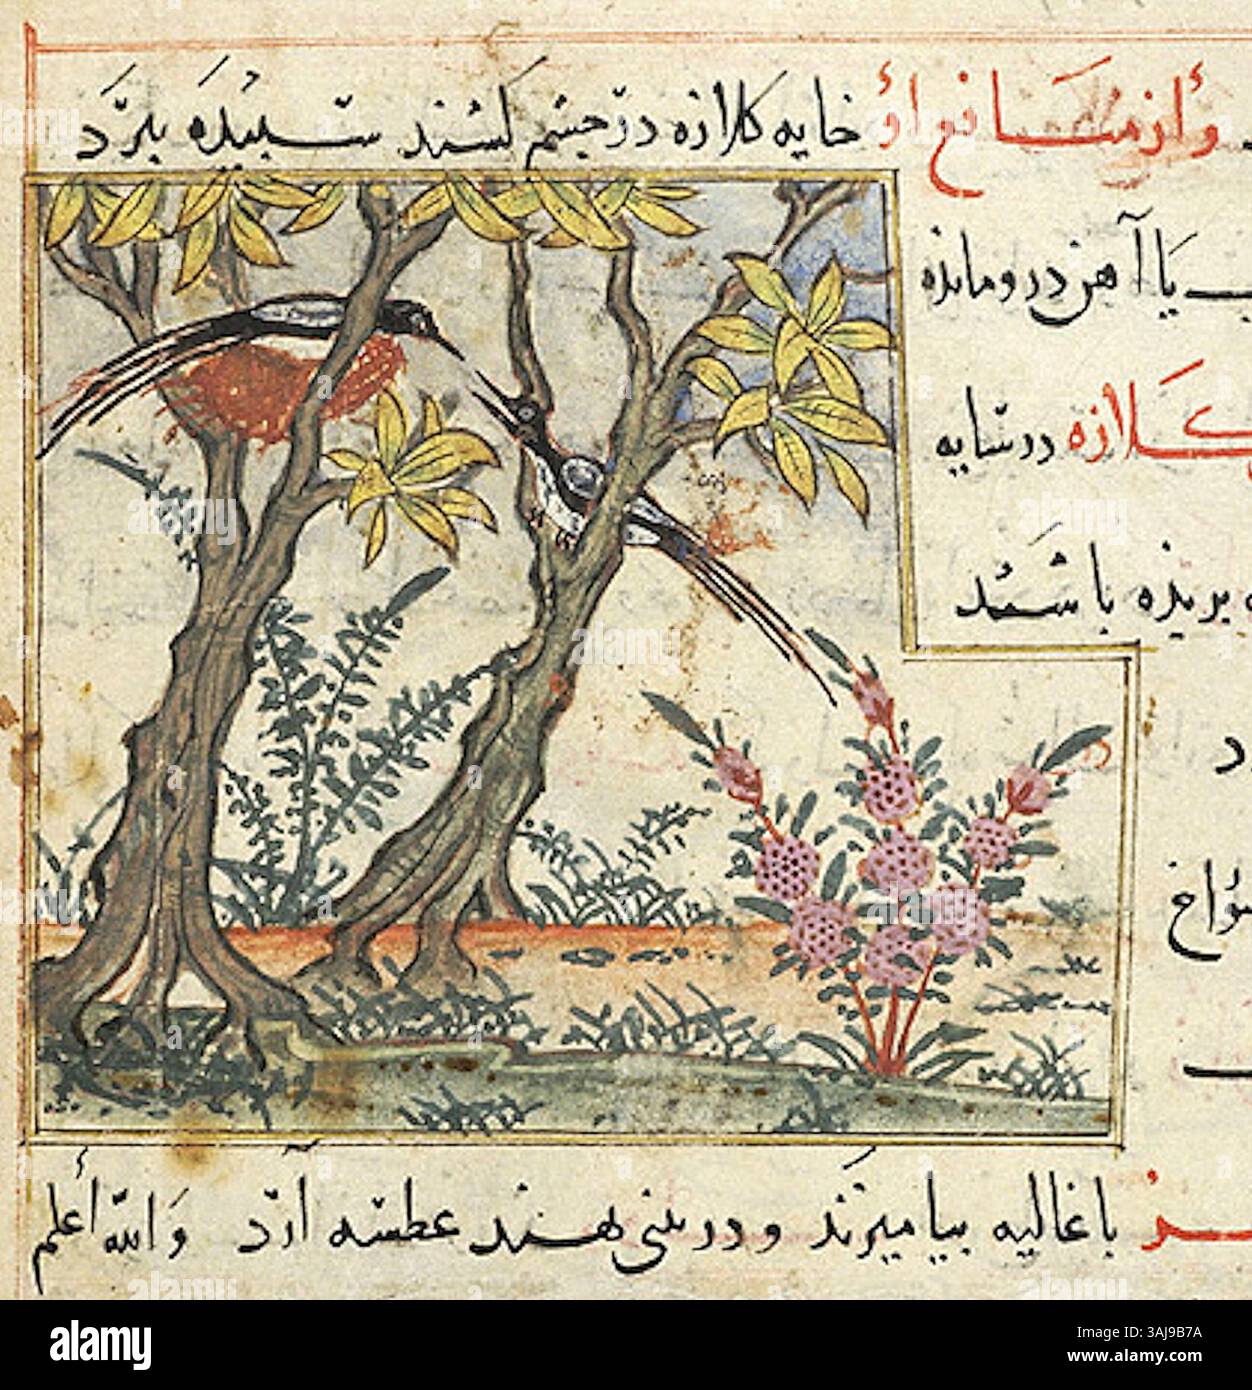 وأز منافع أو خایه کلازه در چشم کشند سبیده ببرد
یا آهن در و مانده
کلازه در سایه
بریده باشند
د
سوراخ
با غالیه بیامیزند و در بینی نهند عطسه آرد والله أعلم
alamy
Image ID: 3AJ9B7A
www.alamy.com